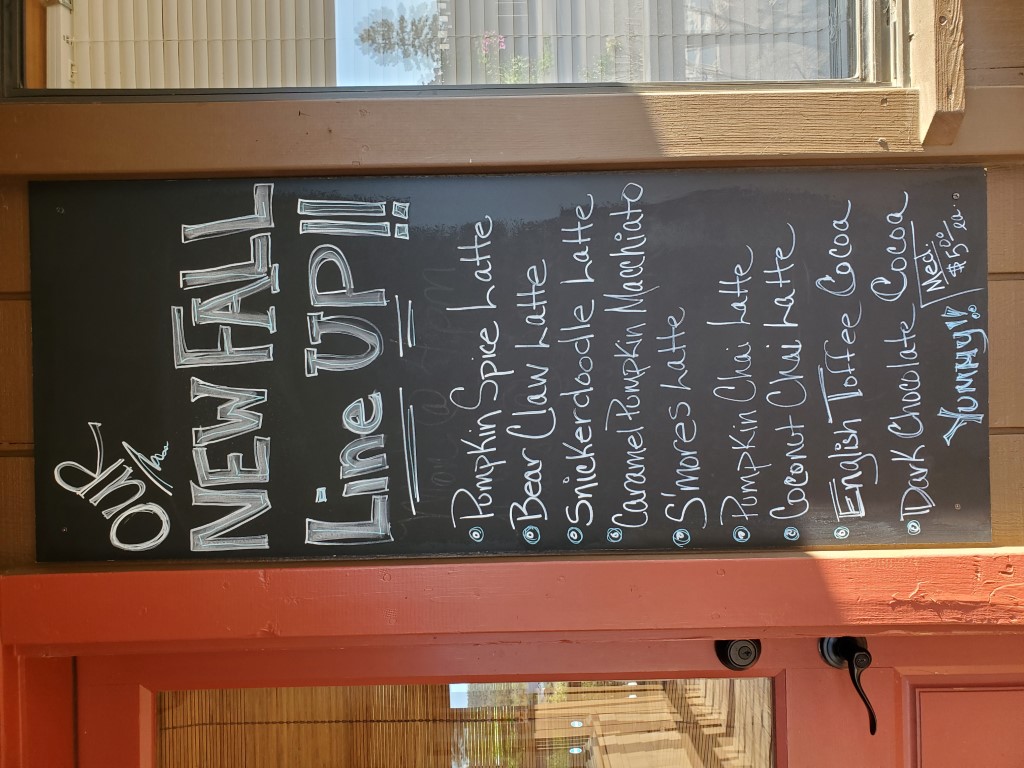 OUR
NEW FALL
Line UP!!
Pumpkin Spice Latte
Bear Claw Latte
Snickerdoodle Latte
Caramel Pumpkin Macchiato
S'mores Latte
Pumpkin Chai Latte
Coconut Chai Latte
English Toffee Cocoa
Dark Chocolate Cocoa
Yummy!!
Med:
$5.00 ea..